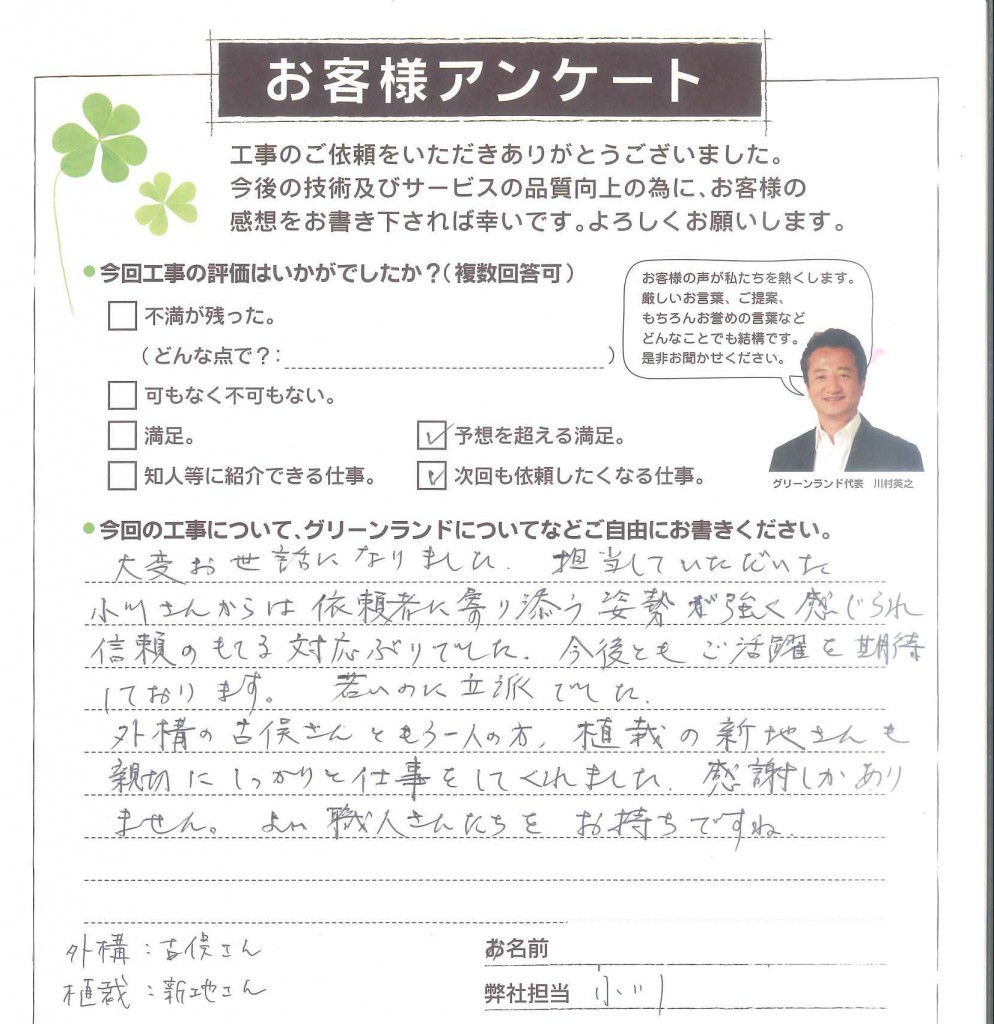 お客様アンケート
工事のご依頼をいただきありがとうございました。
今後の技術及びサービスの品質向上の為に、お客様の
感想をお書き下されば幸いです。よろしくお願いします。
今回工事の評価はいかがでしたか?(複数回答可)
不満が残った。
(どんな点で?: )
可もなく不可もない。
満足。
予想を超える満足。
知人等に紹介できる仕事。
次回も依頼したくなる仕事。
お客様の声が私たちを熱くします。
厳しいお言葉、ご提案、
もちろんお誉めの言葉など
どんなことでも結構です。
是非お聞かせください。
グリーンランド代表 川村英之
今回の工事について、グリーンランドについてなどご自由にお書きください。
大変お世話になりました. 担当していただいた
小川さんからは依頼者に寄り添う姿勢が強く感じられ
信頼のもてる対応ぶりでした. 今後ともご活躍を期待
しております。 若いのに立派でした.
外構の古俣さんともう一人の方, 植栽の新地さんも
親切にしっかりと仕事をしてくれました. 感謝しかあり
ません。 よい職人さんたちをお持ちですね.
外構:古俣さん
植栽:新地さん
お名前
弊社担当 小川